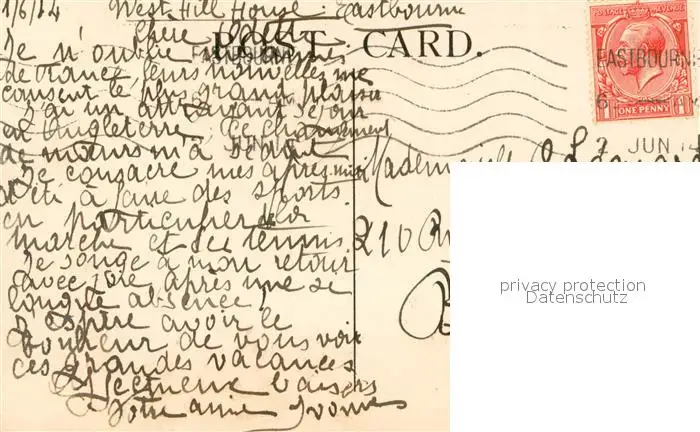 1/6/24 West Hill House: Eastbourne
Chère
POST CARD.
Je n'oublie
de France, leurs nouvelles me
causent le plus grand plaisir
J'ai un attrayant séjour
en Angleterre, Ce changement
de mœurs m'a séduit
Je consacre mes après-midi
d'été à faire des sports
en particulier de la
marche et du tennis.
Je songe à mon retour
avec joie, après une si
longue absence,
J'espère avoir le
bonheur de vous voir
ces grandes vacances
Affectueux baisers
Votre amie Yvonne
EASTBOURNE
JUN
POSTAGE REVENUE
ONE PENNY
EASTBOURNE
JUN
Mademoiselle
210 Ru
privacy protection
Datenschutz